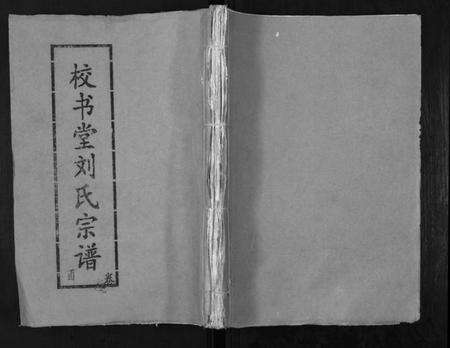 校书堂刘氏宗谱
卷